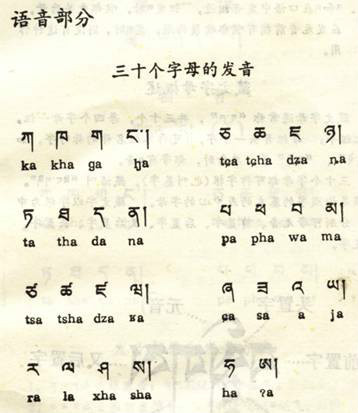 语音部分
三十个字母的发音
ཀ ཁ ག ང་། ཅ ཆ ཇ ཉ།
ka kha ga ŋa tɕa tɕha dʑa ȵa
ཏ ཐ ད ན། པ ཕ བ མ།
ta tha da na pa pha wa ma
ཙ ཚ ཛ ཝ། ཞ ཟ འ ཡ།
tsa tsha dza ʁa ɕa sa a ja
ར ལ ཤ ས། ཧ ཨ།
ra la xha sha ha ʔa